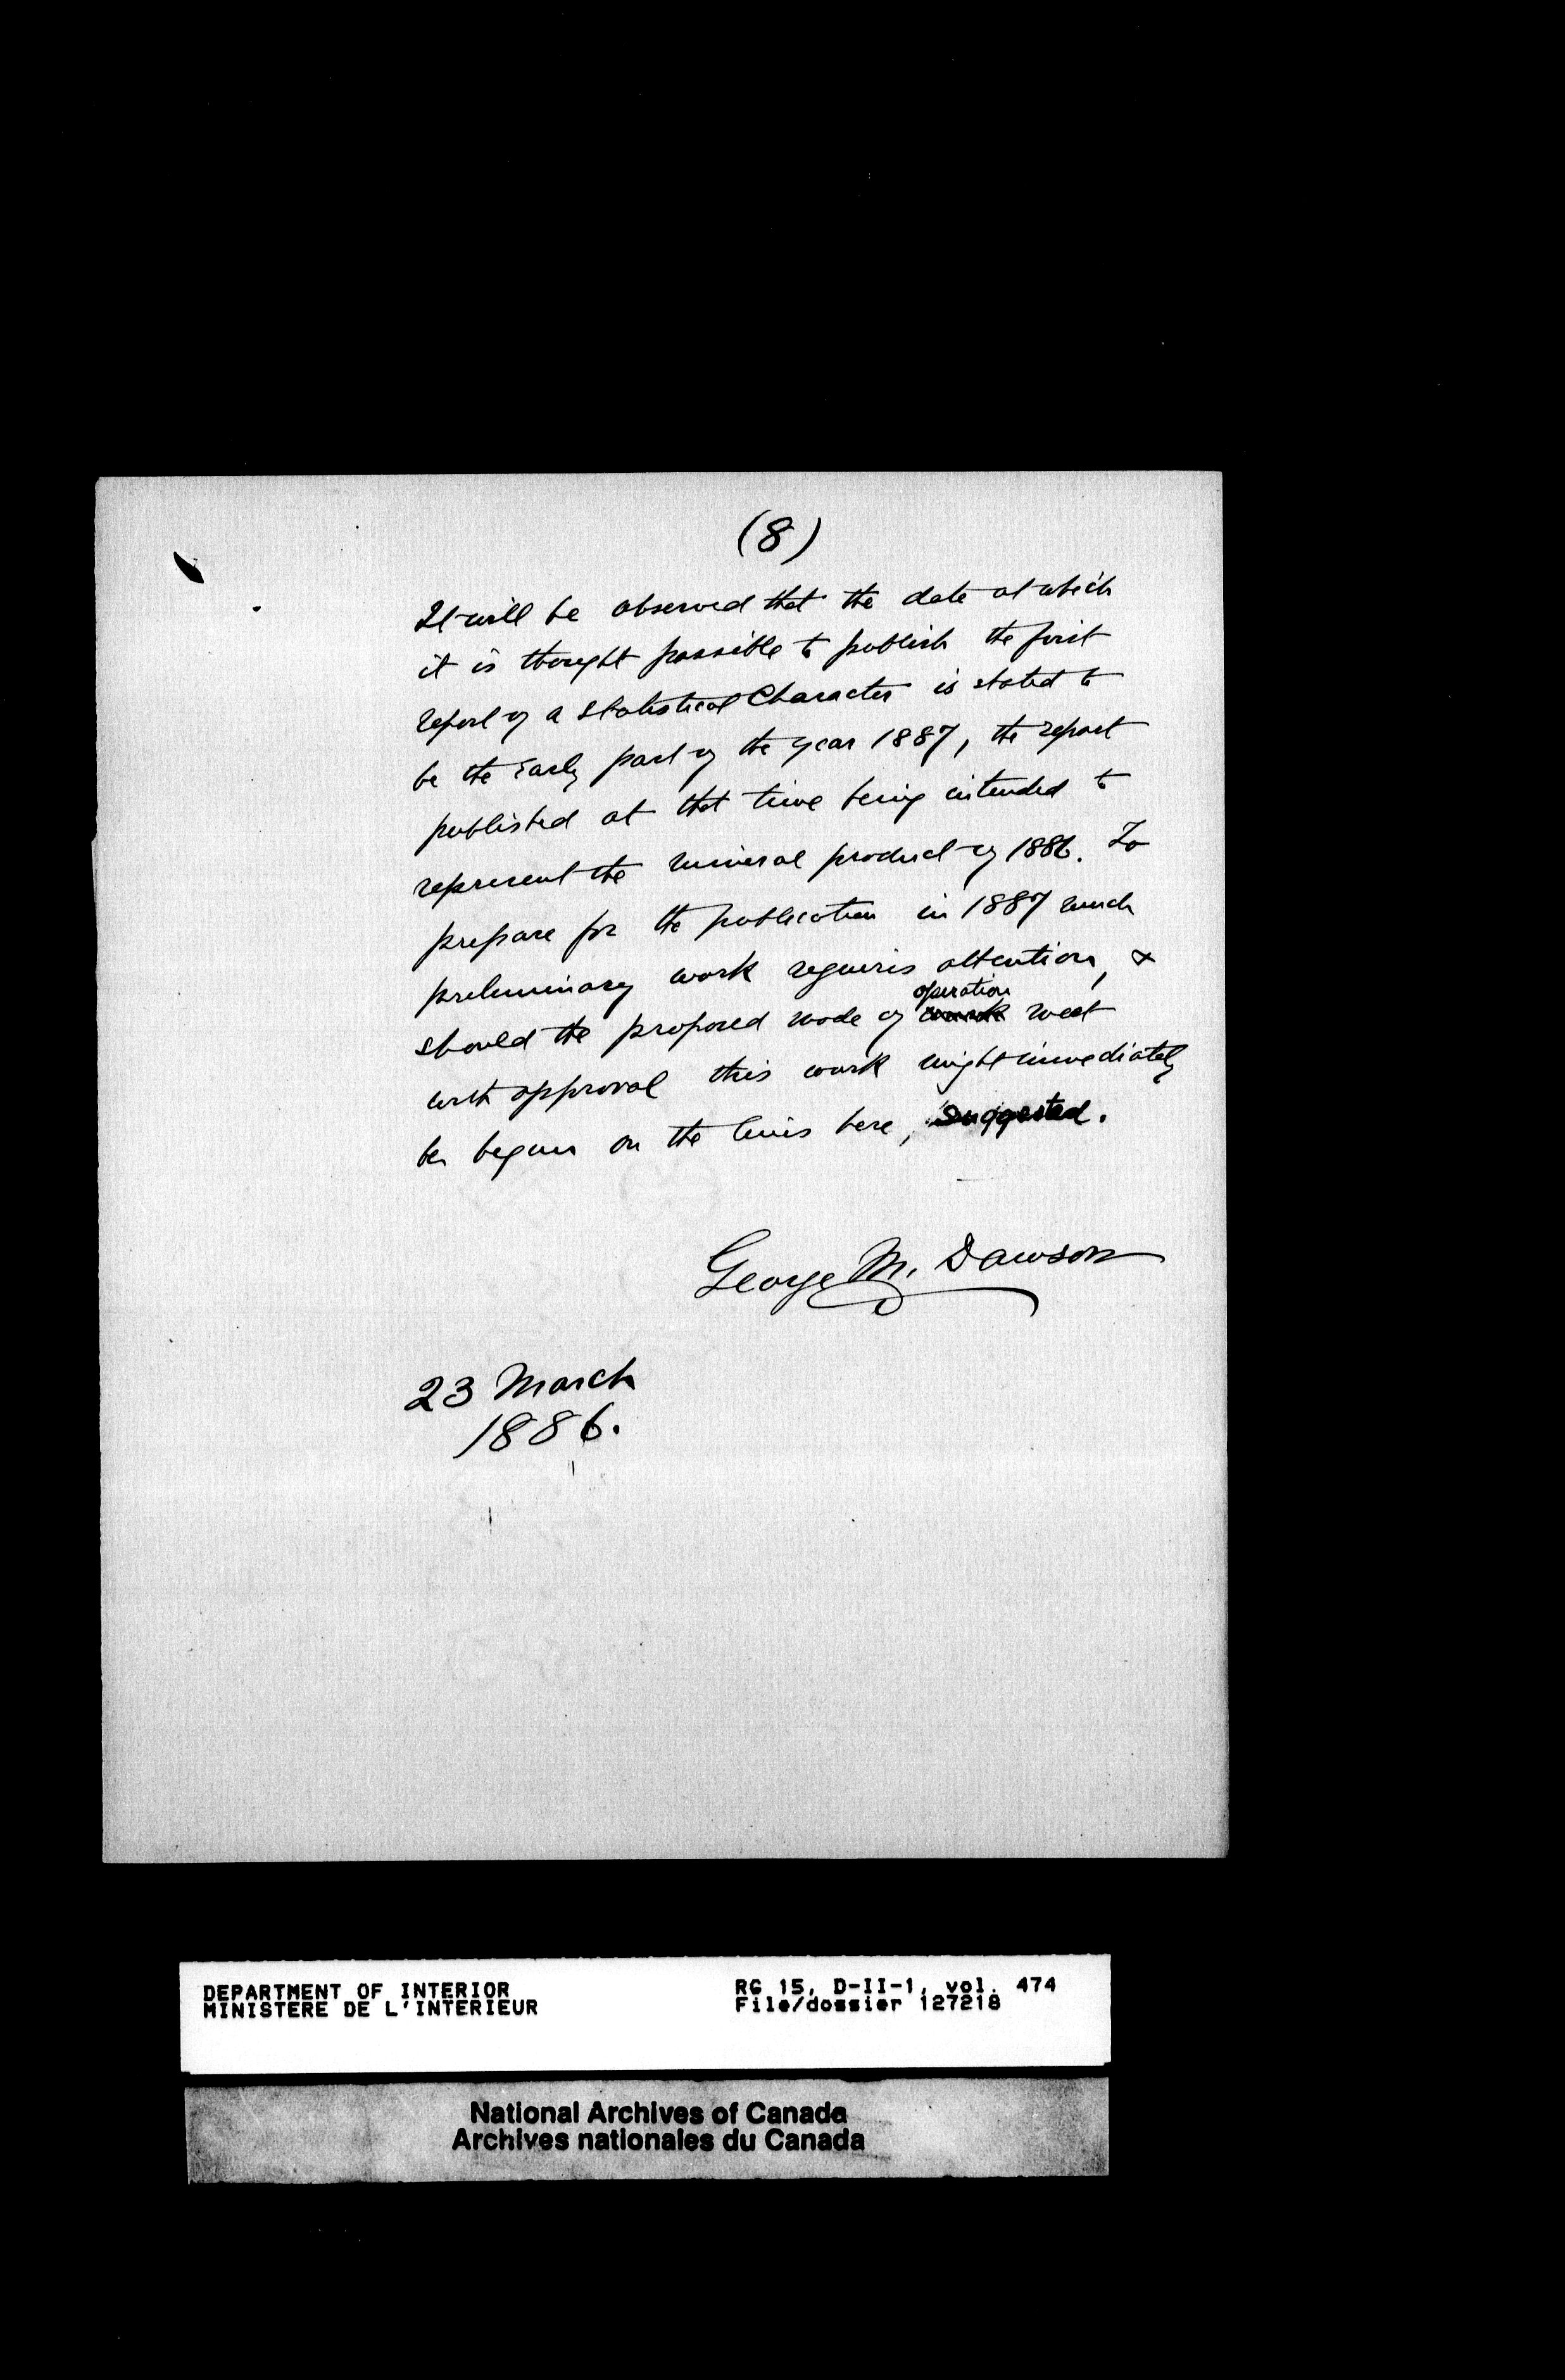 (8)
It will be observed that the date at which
it is thought possible to publish the first
report of a Statistical Character is stated to
be the Early part of the year 1887, the report
published at that time being intended to
represent the mineral product of 1886. To
prepare for the publication in 1887 much
preliminary work requires attention, &
operation
should the proposed mode of work meet
with approval this work might immediately
be begun on the lines here, suggested.
George M. Dawson
23 March
1886.
DEPARTMENT OF INTERIOR RG 15, D-II-1, vol. 474
MINISTERE DE L'INTERIEUR File/dossier 127218
National Archives of Canada
Archives nationales du Canada